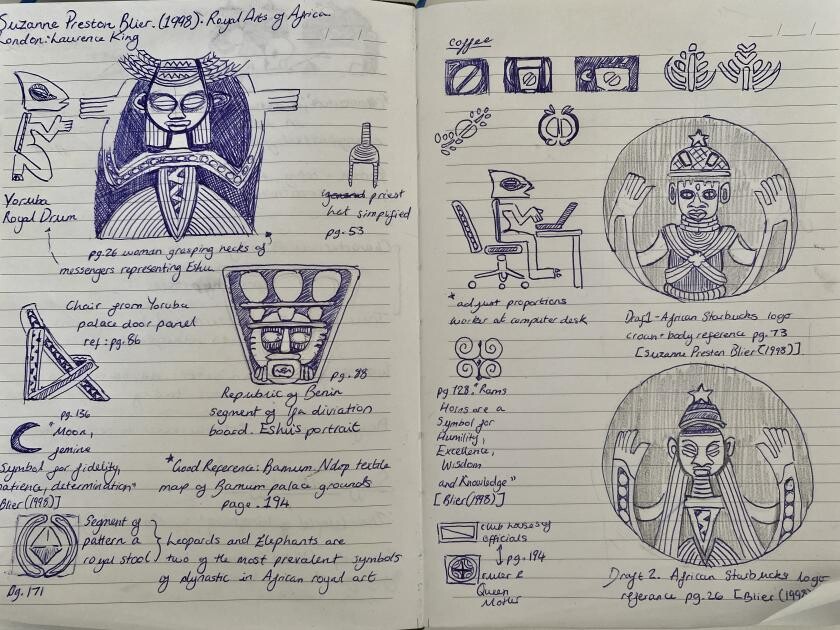 Suzanne Preston Blier. (1998). Royal Arts of Africa
London: Laurence King
Yoruba
Royal Drum
priest
hat simplified
pg. 53
pg. 26 woman grasping necks of
messengers representing Eshu
Chair from Yoruba
palace door panel
ref: pg. 86
pg. 88
Republic of Benin
segment of Ifa diviation
board. Eshu's portrait
pg. 136
"Moon,
femine
symbol for fidelity,
patience, determination"
Blier (1998)]
*Good Reference: Bamum Ndop textile
map of Bamum palace grounds
page. 194
Segment of
pattern a
royal stool
Leopards and Elephants are
two of the most prevalent symbols
of dynastic in African royal art
Pg. 171
coffee
*adjust proportions
worker at computer desk
Draft 1 - African Starbucks logo
crown + body reference pg. 73
[Suzanne Preston Blier (1998)]
pg 128. "Rams
Horns are a
Symbol for
Humility,
Excellence,
Wisdom
and Knowledge"
[Blier (1998)]
club houses of
officials
pg. 194
ruler &
Queen
Mother
Draft 2. African Starbucks logo
referance pg. 26 [Blier (1998)